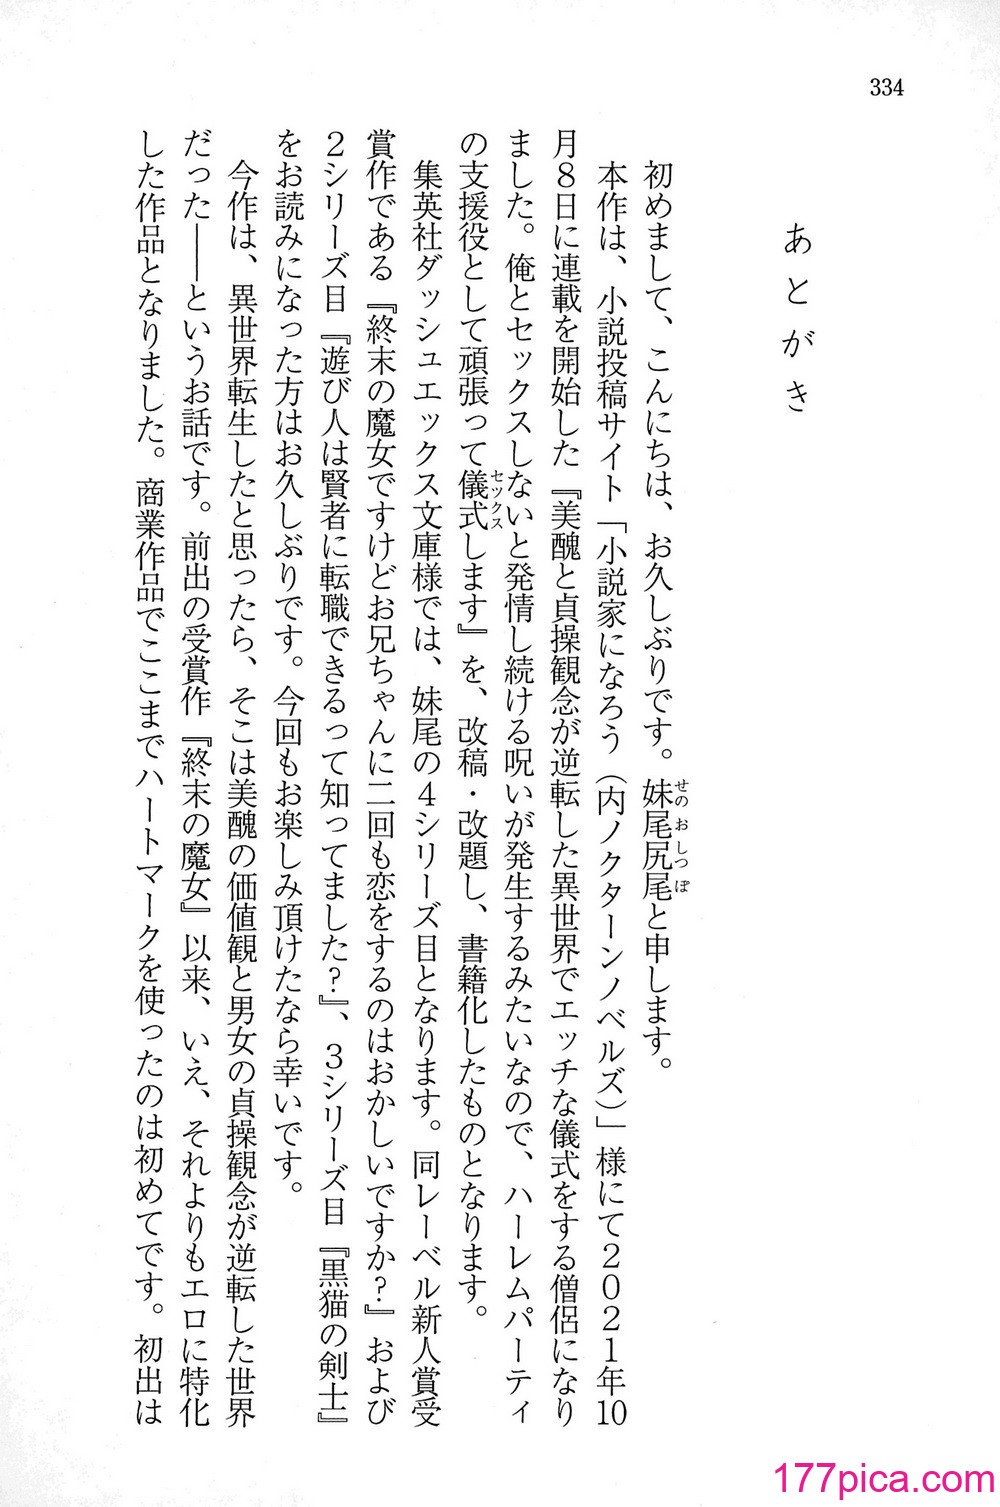 334
あとがき
初めまして、こんにちは、お久しぶりです。妹尾尻尾と申します。
せのおしっぽ
本作は、小説投稿サイト「小説家になろう（内ノクターンノベルズ）」様にて2021年10
月8日に連載を開始した『美醜と貞操観念が逆転した異世界でエッチな儀式をする僧侶になり
ました。俺とセックスしないと発情し続ける呪いが発生するみたいなので、ハーレムパーティ
の支援役として頑張って儀式します』を、改稿・改題し、書籍化したものとなります。
セックス
集英社ダッシュエックス文庫様では、妹尾の4シリーズ目となります。同レーベル新人賞受
賞作である『終末の魔女ですけどお兄ちゃんに二回も恋をするのはおかしいですか？』および
2シリーズ目『遊び人は賢者に転職できるって知ってました？』、3シリーズ目『黒猫の剣士』
をお読みになった方はお久しぶりです。今回もお楽しみ頂けたなら幸いです。
今作は、異世界転生したと思ったら、そこは美醜の価値観と男女の貞操観念が逆転した世界
だった――というお話です。前出の受賞作『終末の魔女』以来、いえ、それよりもエロに特化
した作品となりました。商業作品でここまでハートマークを使ったのは初めてです。初出は
177pica.com